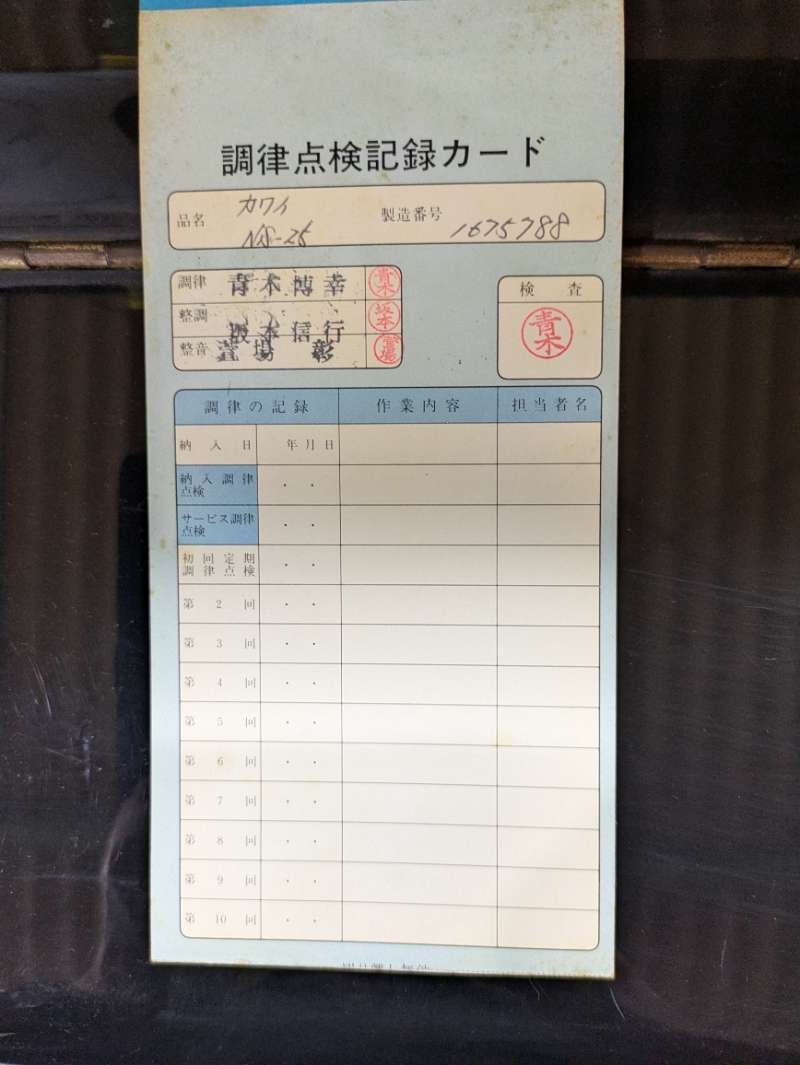 調律点検記録カード
品名 カワイ NS-25 製造番号 1675788
調律 青木博幸 青木
整調 坂本信行 坂本
整音 萱場 彰
検査
青木
調律の記録 作業内容 担当者名
納入日 年月日
納入調律点検 ・・
サービス調律点検 ・・
初回定期調律点検 ・・
第2回 ・・
第3回 ・・
第4回 ・・
第5回 ・・
第6回 ・・
第7回 ・・
第8回 ・・
第9回 ・・
第10回 ・・